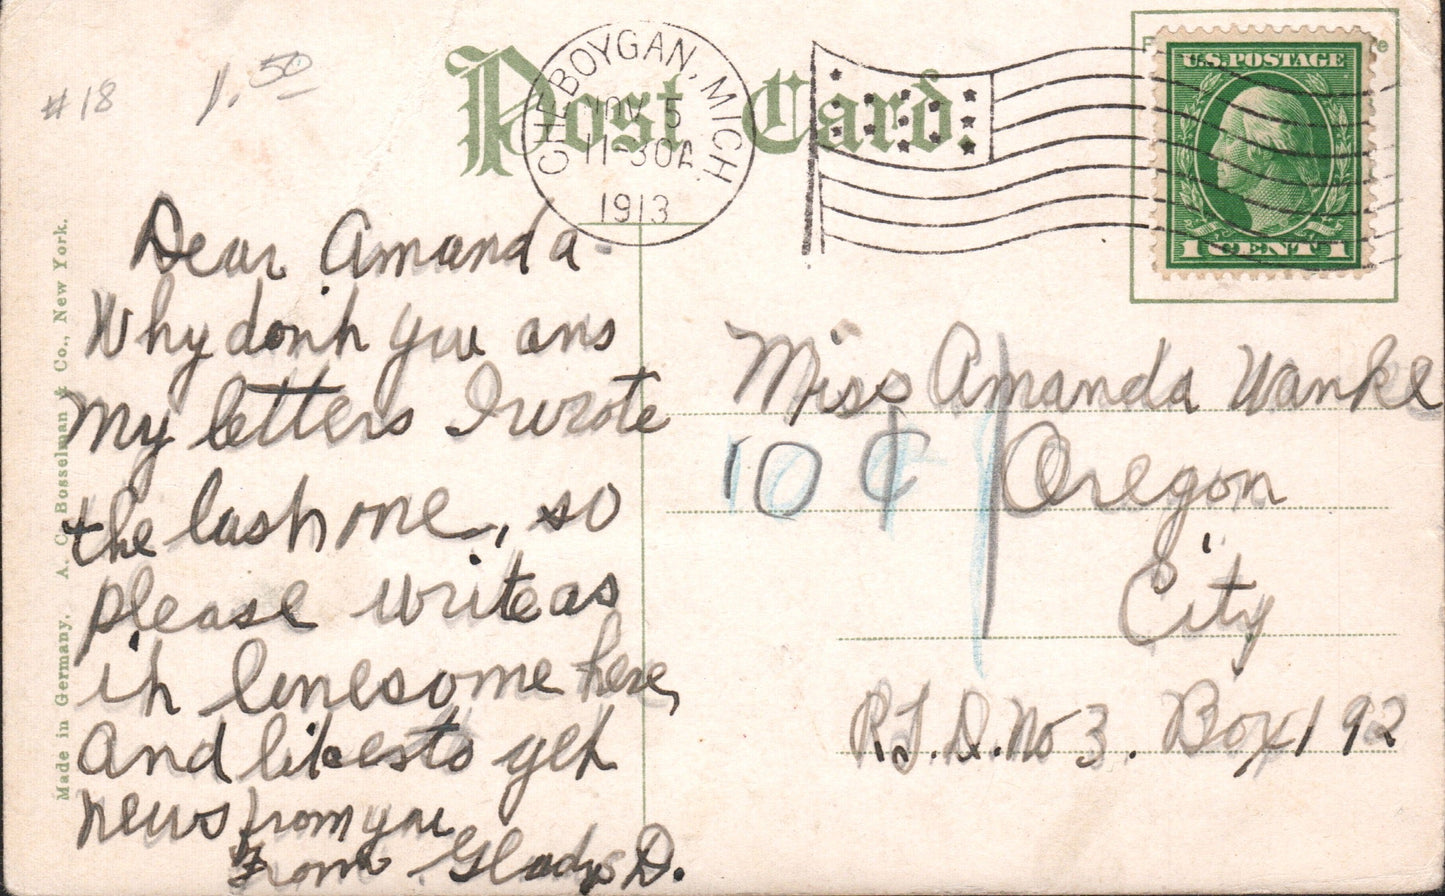 #18
1.50
Post Card.
CHEBOYGAN, MICH.
NOV 5
11-30A
1913
U.S. POSTAGE
1 CENT 1
Dear Amanda-
Why don't you ans
My letters I wrote
the last one, so
please write as
it lonesome here,
And likes to get
news from you
From Gladys D.
Miss Amanda Wanke
10¢ Oregon
City
R.F.D. No 3. Box 192
Made in Germany. A. C. Bosselman & Co., New York.